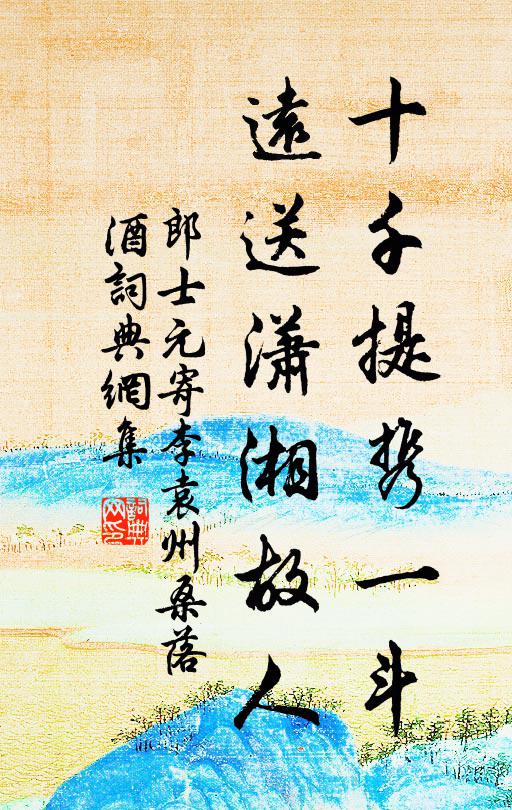 十千提攜一斗
遠送瀟湘故人
郎士元寄李袁州桑落
酒詞典網集
詞典
网印